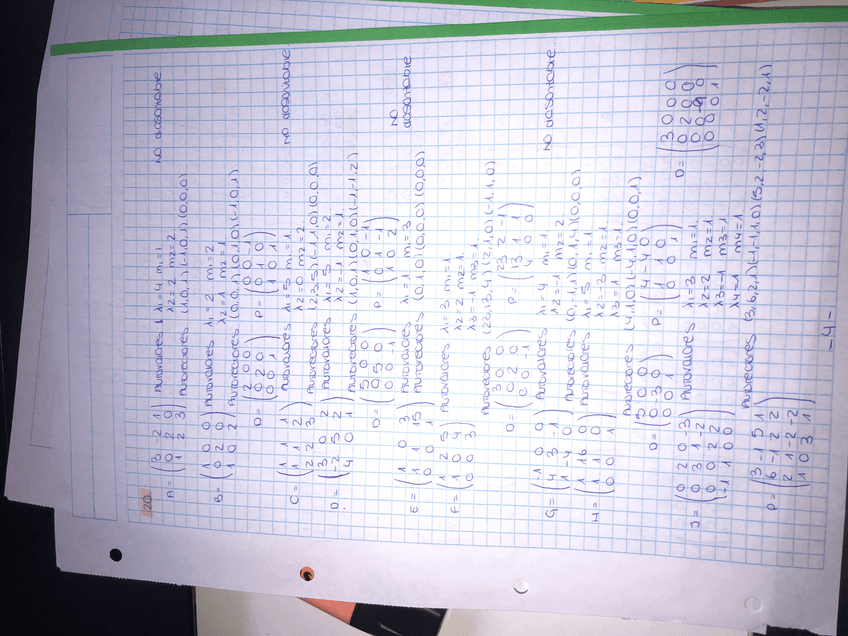 20
A = (3 -2 1
0 2 0
1 2 3) Autovalores λ1 = 4 m1 = 1
λ2 = 2 m2 = 2
Autovectores (1,0,1) (-1,0,1) (0,0,0)
B = (1 0 0
0 2 0
1 0 2) Autovalores λ1 = 2 m1 = 2
λ2 = 1 m2 = 1
Autovectores (0,0,1) (0,1,0) (-1,0,1)
D = (2 0 0
0 2 0
0 0 1) P = (0 0 -1
0 1 0
1 0 1)
C = (1 1 1
1 1 1
2 2 3) Autovalores λ1 = 5 m1 = 1
λ2 = 0 m2 = 2
Autovectores (2,3,5) (-1,1,0) (0,0,0)
D = (3 0 2
-2 5 2
4 0 1) Autovalores λ1 = 5 m1 = 2
λ2 = -1 m2 = 1
Autovectores (1,0,1) (0,1,0) (-1,-1,2)
D = (5 0 0
0 5 0
0 0 1) P = (1 0 -1
0 1 -1
1 0 2)
E = (1 0 3
1 1 15
0 0 1) Autovalores λ1 = 1 m = 3
Autovectores (0,1,0) (0,0,0) (0,0,0)
F = (1 2 5
1 0 4
0 0 3) Autovalores λ1 = 3 m1 = 1
λ2 = 2 m2 = 1
λ3 = -1 m3 = 1
Autovectores (23,13,4) (2,1,0) (-1,1,0)
D = (3 0 0
0 2 0
0 0 -1) P = (23 2 -1
13 1 1
4 0 0)
G = (1 0 0
4 3 -1
1 -4 0) Autovalores λ1 = 4 m1 = 1
λ2 = -1 m2 = 2
Autovectores (0,-1,1) (0,1,4) (0,0,0)
H = (1 16 0
1 1 0
0 0 1) Autovalores λ1 = 5 m1 = 1
λ2 = -3 m2 = 1
λ3 = 1 m3 = 1
Autovectores (4,1,0) (-4,1,0) (0,0,1)
D = (5 0 0
0 -3 0
0 0 1) P = (4 -4 0
1 1 0
0 0 1)
J = (0 2 0 3
0 3 1 -2
0 0 2 2
-1 1 0 0) Autovalores λ1 = 3 m1 = 1
λ2 = 2 m2 = 1
λ3 = -1 m3 = 1
λ4 = 1 m4 = 1
D = (3 0 0 0
0 2 0 0
0 0 -1 0
0 0 0 1)
Autovectores (3,6,2,1) (-1,-1,1,0) (5,2-2,3) (1,2,-2,1)
P = (3 -1 5 1
6 -1 2 2
2 1 -2 -2
1 0 3 1)
-4-